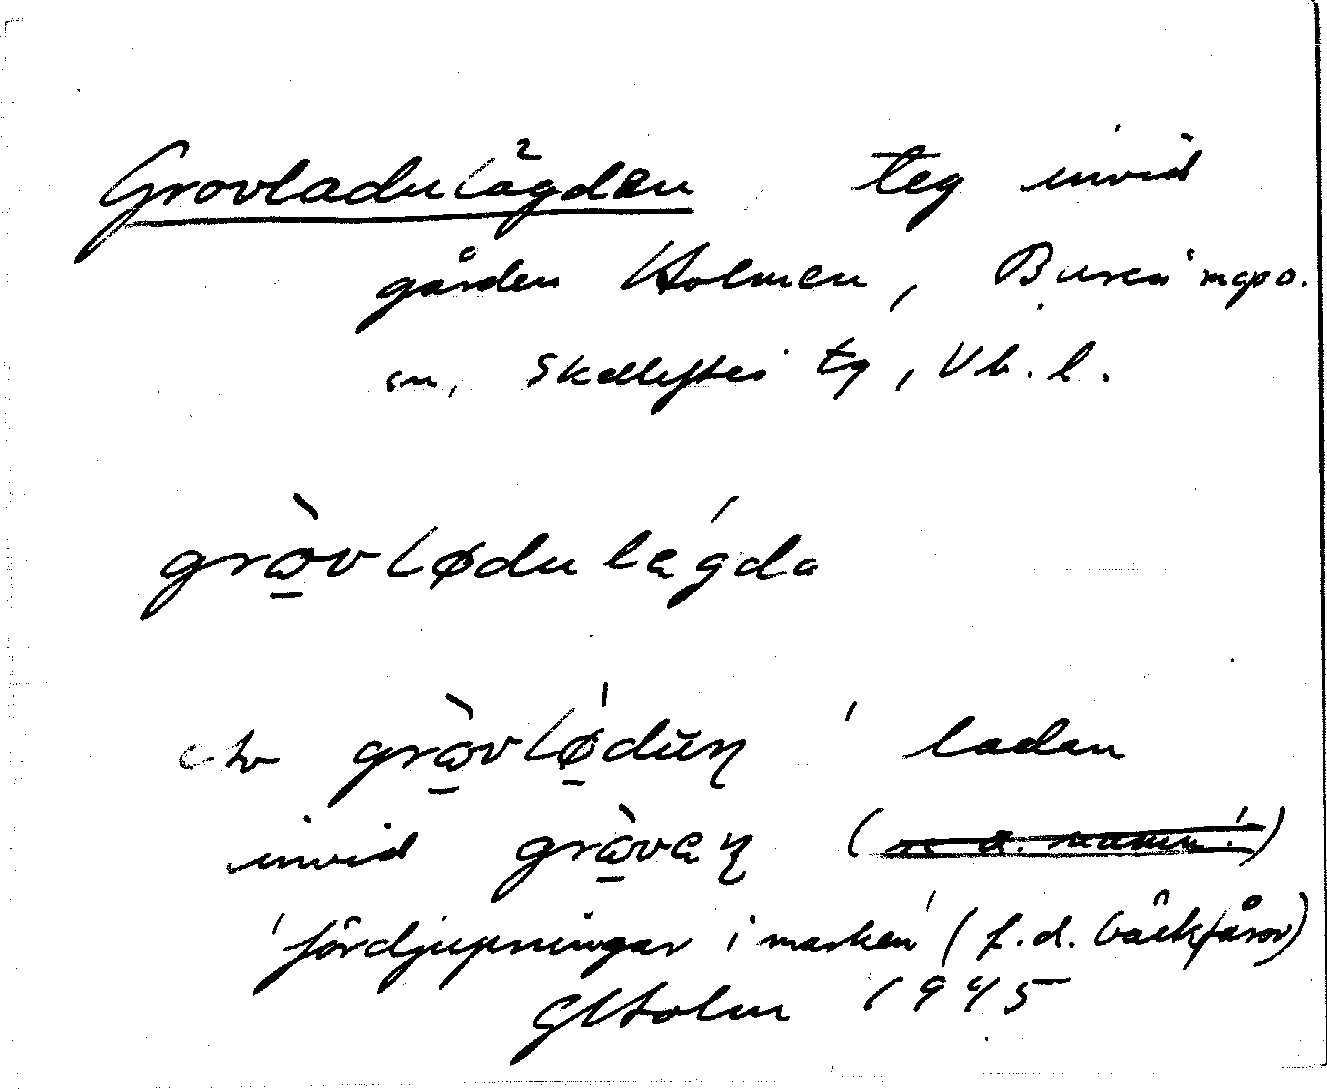 Grovladulägden teg invid
gården Holmen, Bureå mpo.
sn, Skellefteå tg, Vb. l.
grò̱vlødulágda
grò̱vlǿ̱dŭn ' ladan
invid grò̱vaɳ ( )
'fördjupningar i marken' (f.d. bäckfåror)
GHolm 1945